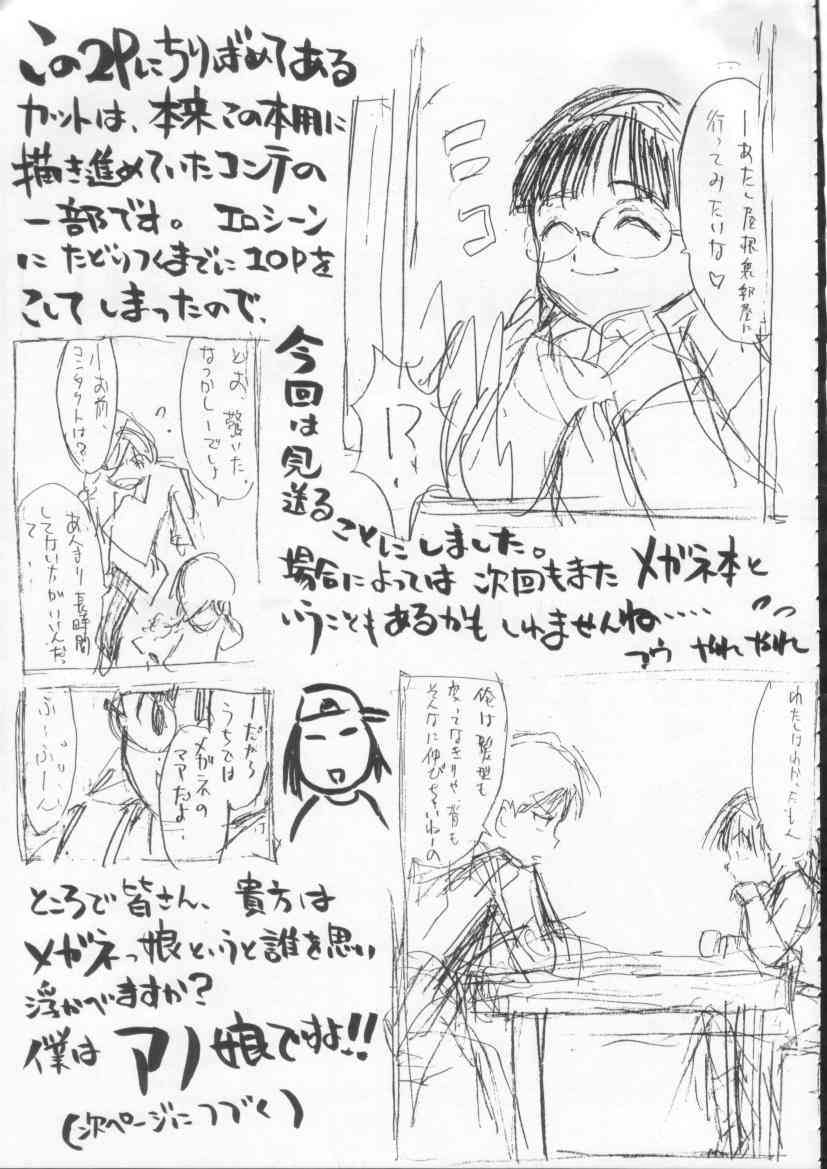 この2Pにちりばめてある
カットは、本来この本用に
描き進めていたコンテの
一部です。エロシーン
にたどりつくまでに10Pを
こしてしまったので、
今回は見送る
ことにしました。
場合によっては次回もまたメガネ本と
いうこともあるかもしれませんね……
フウ やれやれ
ーあたし屋根裏部屋に
行ってみたいな♡
ニコ
!?
とお、驚いた。
なつかしーでしょ
ーお前、
コンタクトは?
あんまり長時間
してないた方がいいんだ
って
ーだから
うちでは
メガネの
ママだよ。
ふーふーん
わたしはわかったもん
俺は髪型も
変ってなきりゃ背も
そんなに伸びちゃいねーの
ところで皆さん、貴方は
メガネっ娘というと誰を思い
浮かべますか?
僕はアノ娘ですよ!!
(次ページにつづく)